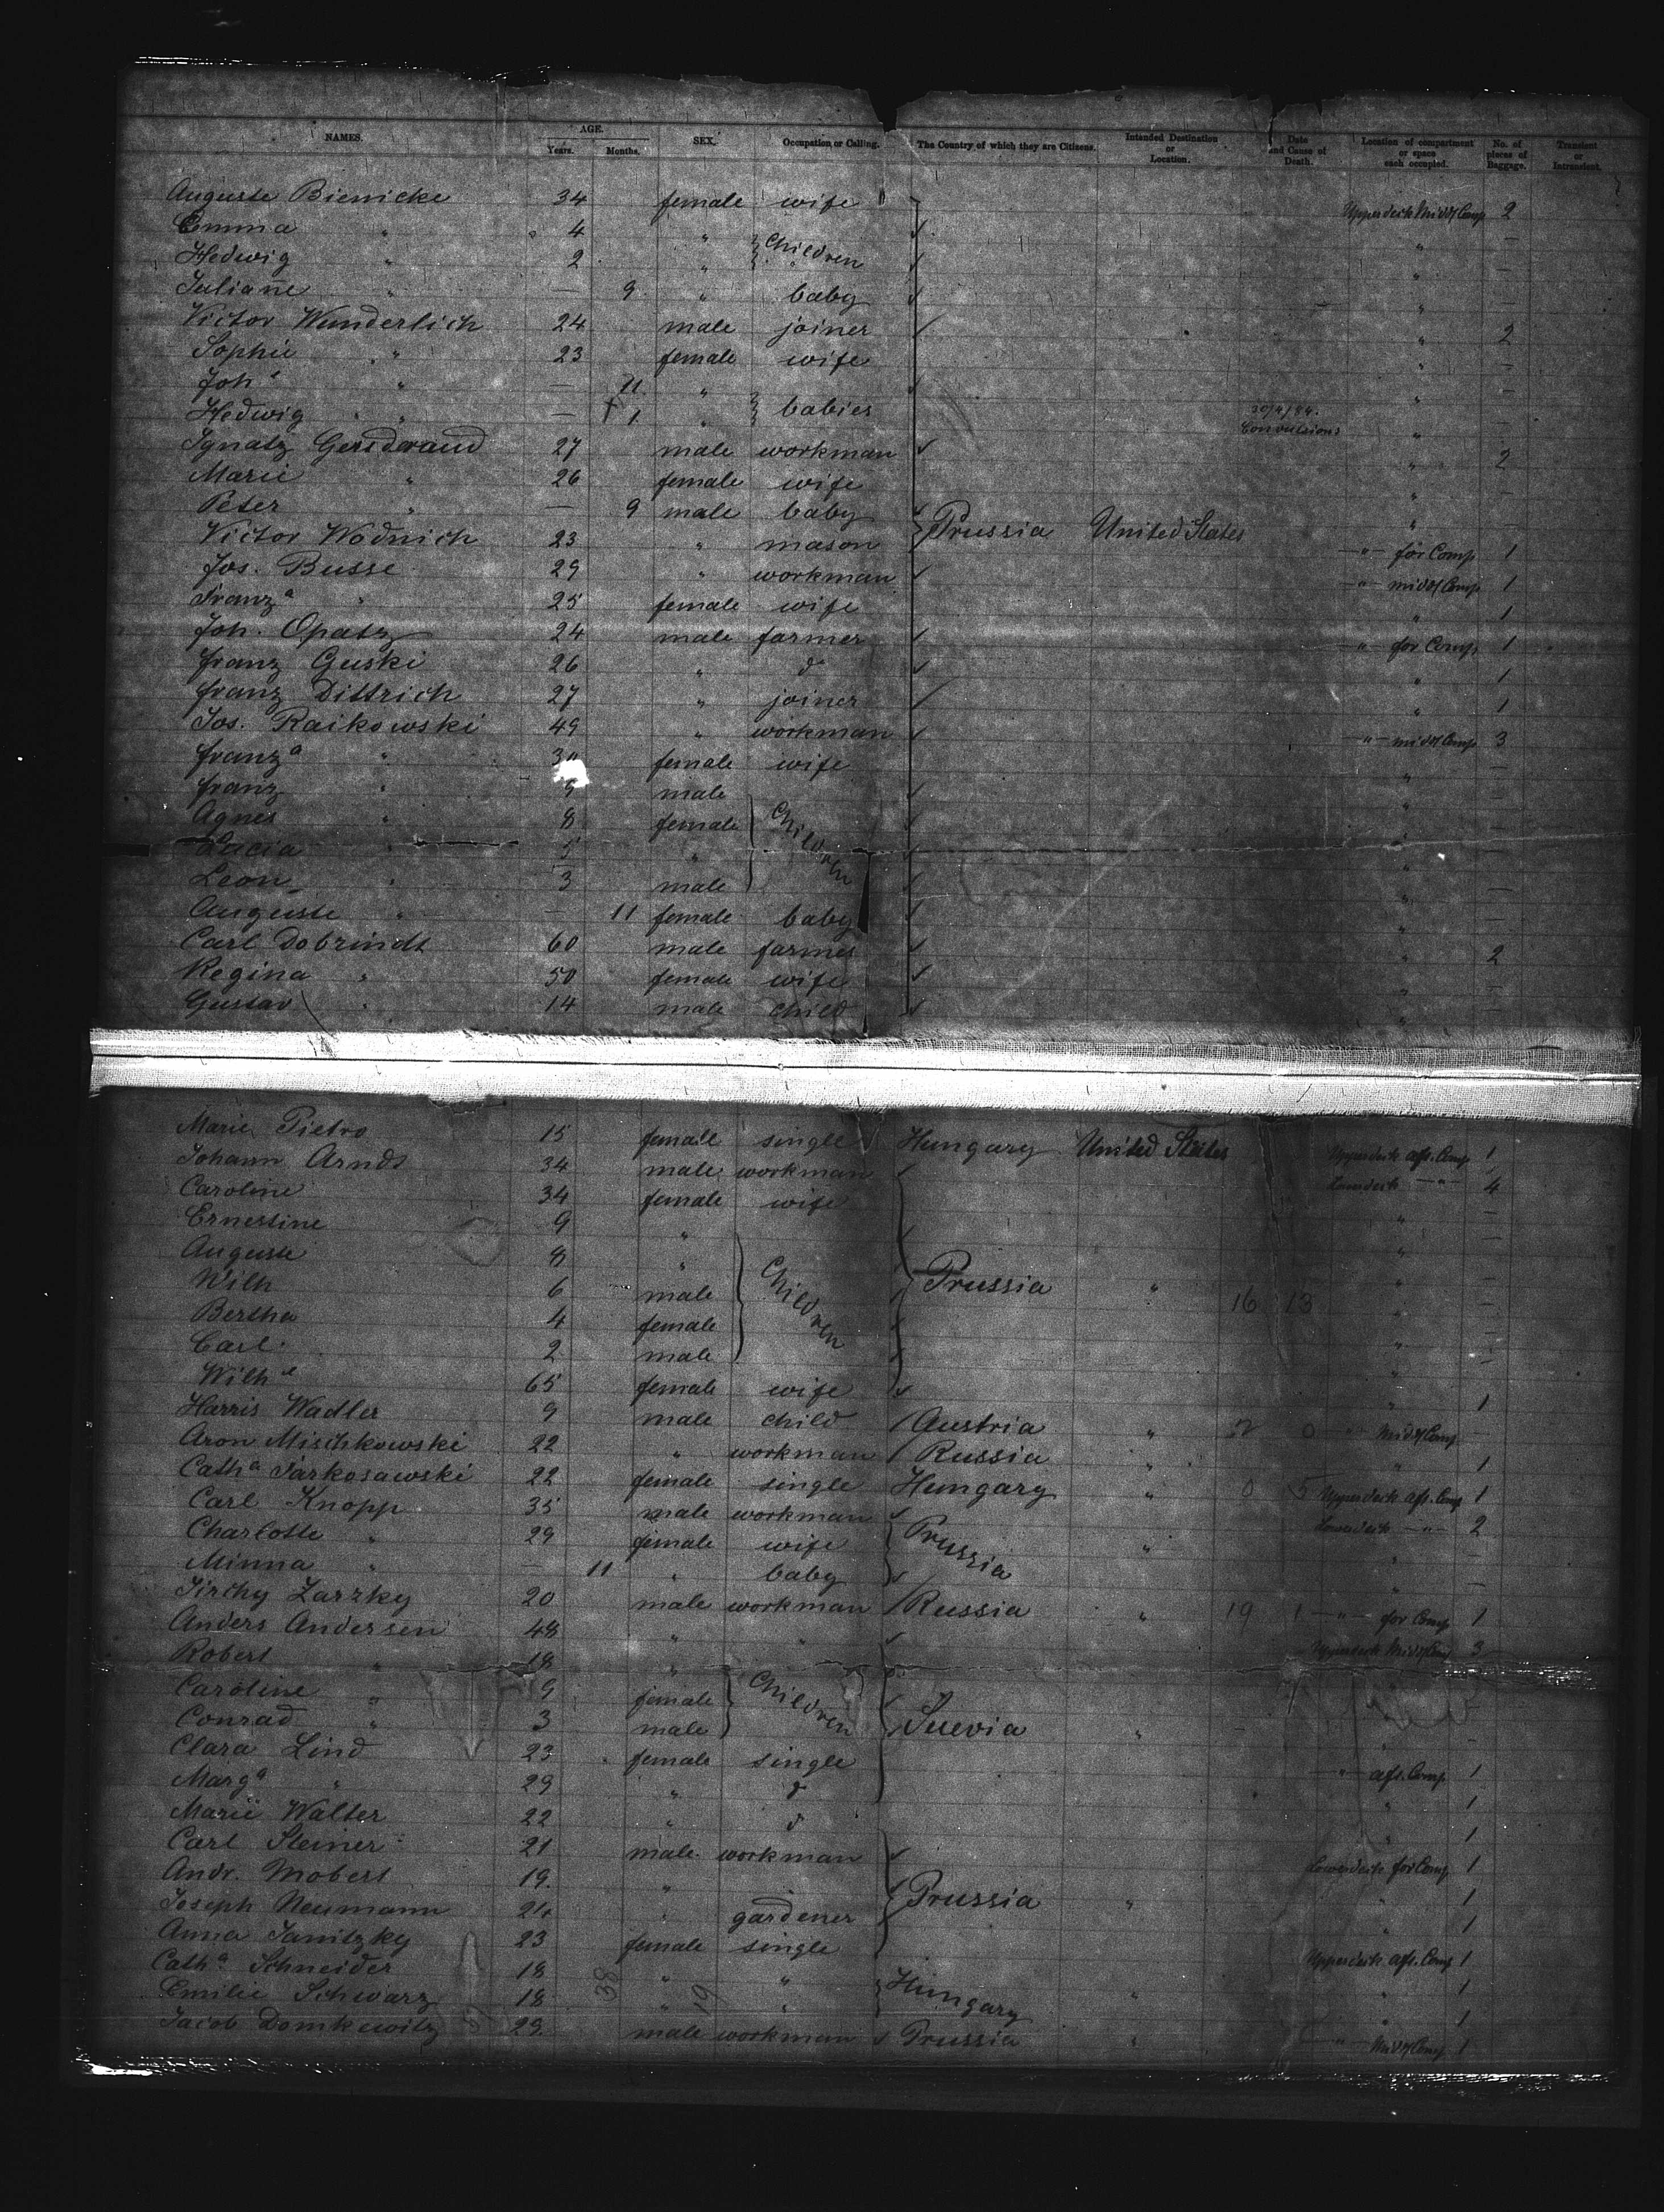 NAMES. AGE. SEX. Occupation or Calling. The Country of which they are Citizens. Intended Destination or Location. Date and Cause of Death. Location of compartment or space each occupied. No. of pieces of Baggage. Transient or Intransient.
Years. Months.
Auguste Bienicke 34 female wife Upperdeck Midd Comp 2
Emma " 4 " Children " —
Hedwig " 2 " " " —
Juliane " — 9 " baby " —
Victor Wunderlich 24 male joiner " 2
Sophie " 23 female wife " —
Joh.e " — 11 " " —
Hedwig " — † 1 " babies 30/4/84. Convulsions " —
Ignatz 27 male workman " 2
Marie " 26 female wife " —
Peter " — 9 male baby " —
Victor Wodnich 23 " mason Prussia United States " for Comp 1
Jos. Busse 29 " workman " midd Comp 1
Franz.a " 25 female wife " 1
Joh. Opatz 24 male farmer " for Comp 1
Franz Guski 26 " d " 1
Franz Dittrich 27 " joiner " 1
Jos. Raikowski 49 " workman " midd Comp 3
Franz.a " female wife " —
Franz " 9 male " —
Agnes " 8 female Children " —
" 5 " " —
Leon " 3 male " —
Auguste " — 11 female baby " —
Carl Dobrindt 60 male farmer " 2
Regina " 50 female wife " —
Gustav " 14 male child "
Marie Pietro 15 female single Hungary United States Upperdeck aft. Comp 1
Johann Arndt 34 male workman Lowerdeck — " — 4
Caroline 34 female wife " —
Ernestine 9 " " —
Auguste 8 " " —
Wilh 6 male Children Prussia " 16 13 " —
Bertha 4 female " —
Carl 2 male " —
Wilh.e 65 female wife " 1
Harris Wadler 9 male child Austria " 0 " Midd Comp —
Aron Mischkowski 22 " workman Russia " " 1
Cath.a Jarkosawski 22 female single Hungary " 0 5 Upperdeck aft. Comp 1
Carl Knopp 35 male workman Lowerdeck — " — 2
Charlotte " 29 female wife Prussia " " —
Minna " — 11 " baby " —
Jirchy Zarzky 20 male workman Russia " 19 1 — " — for Comp 1
Anders Andersen 48 " " Upperdeck Midd Comp 3
Robert " 18 "
Caroline " 9 female Children —
Conrad " 3 male Suevia " " —
Clara Lind 23 female single " aft. Comp 1
Marg.a " 29 " d " 1
Marie Walter 22 " d " 1
Carl Steiner 21 male workman Lowerdeck for Comp 1
Andr. Mobert 19 " " Prussia " " 1
Joseph Neumann 24 " gardener " 1
Anna Janitzky 23 female single Upperdeck aft. Comp 1
Cath.a Schneider 18 " " " 1
Emilie Schwarz 18 38 " 19 " Hungary " " 1
Jacob Domkewitz 29 male workman Prussia " — " — Midd Comp 1